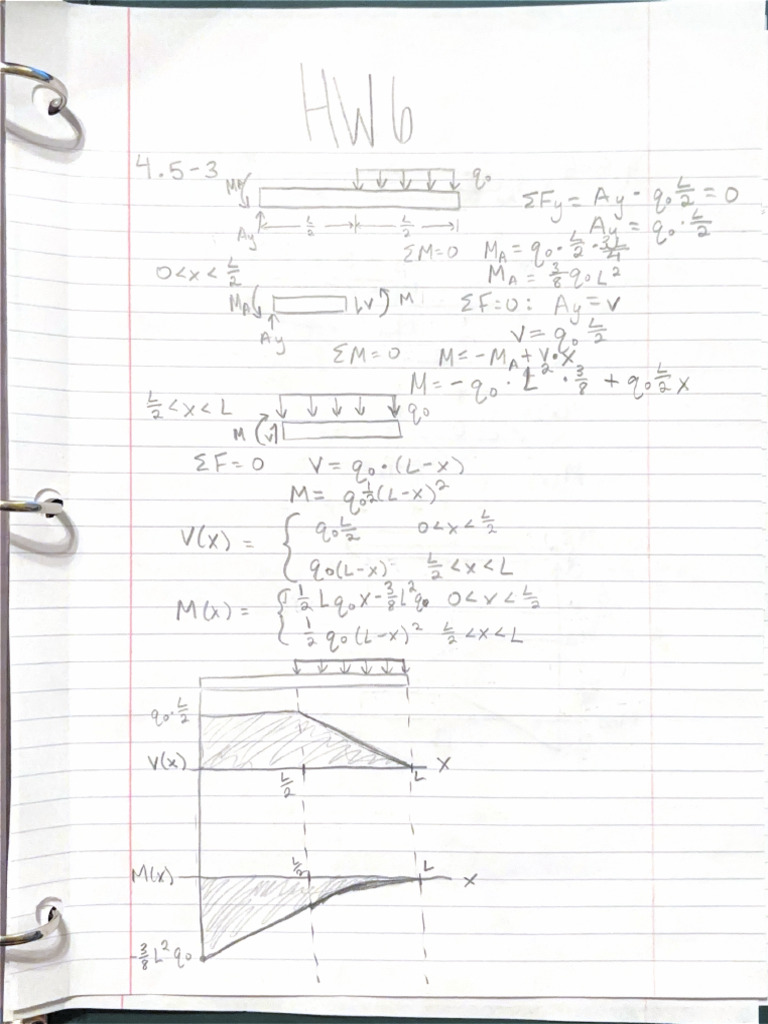 HW6
4.5-3
MA q₀
Ay L/2 L/2
ΣFy = Ay - q₀ L/2 = 0
Ay = q₀ · L/2
ΣM=0 MA = q₀ · L/2 · 3L/4
0<x<L/2 MA = 3/8 q₀L²
MA V M ΣF=0: Ay = V
Ay V = q₀ L/2
ΣM=0 M = -MA + V·x
M = -q₀ · L² · 3/8 + q₀ L/2 x
L/2 < x < L q₀
M V
ΣF=0 V = q₀·(L-x)
M = q₀ 1/2 (L-x)²
V(x) = { q₀ L/2 0<x<L/2
q₀(L-x) L/2 < x < L
M(x) = { 1/2 L q₀ x - 3/8 L² q₀ 0<x<L/2
1/2 q₀ (L-x)² L/2 <x<L
q₀·L/2
V(x) L/2 L x
M(x) L/2 L x
-3/8 L² q₀